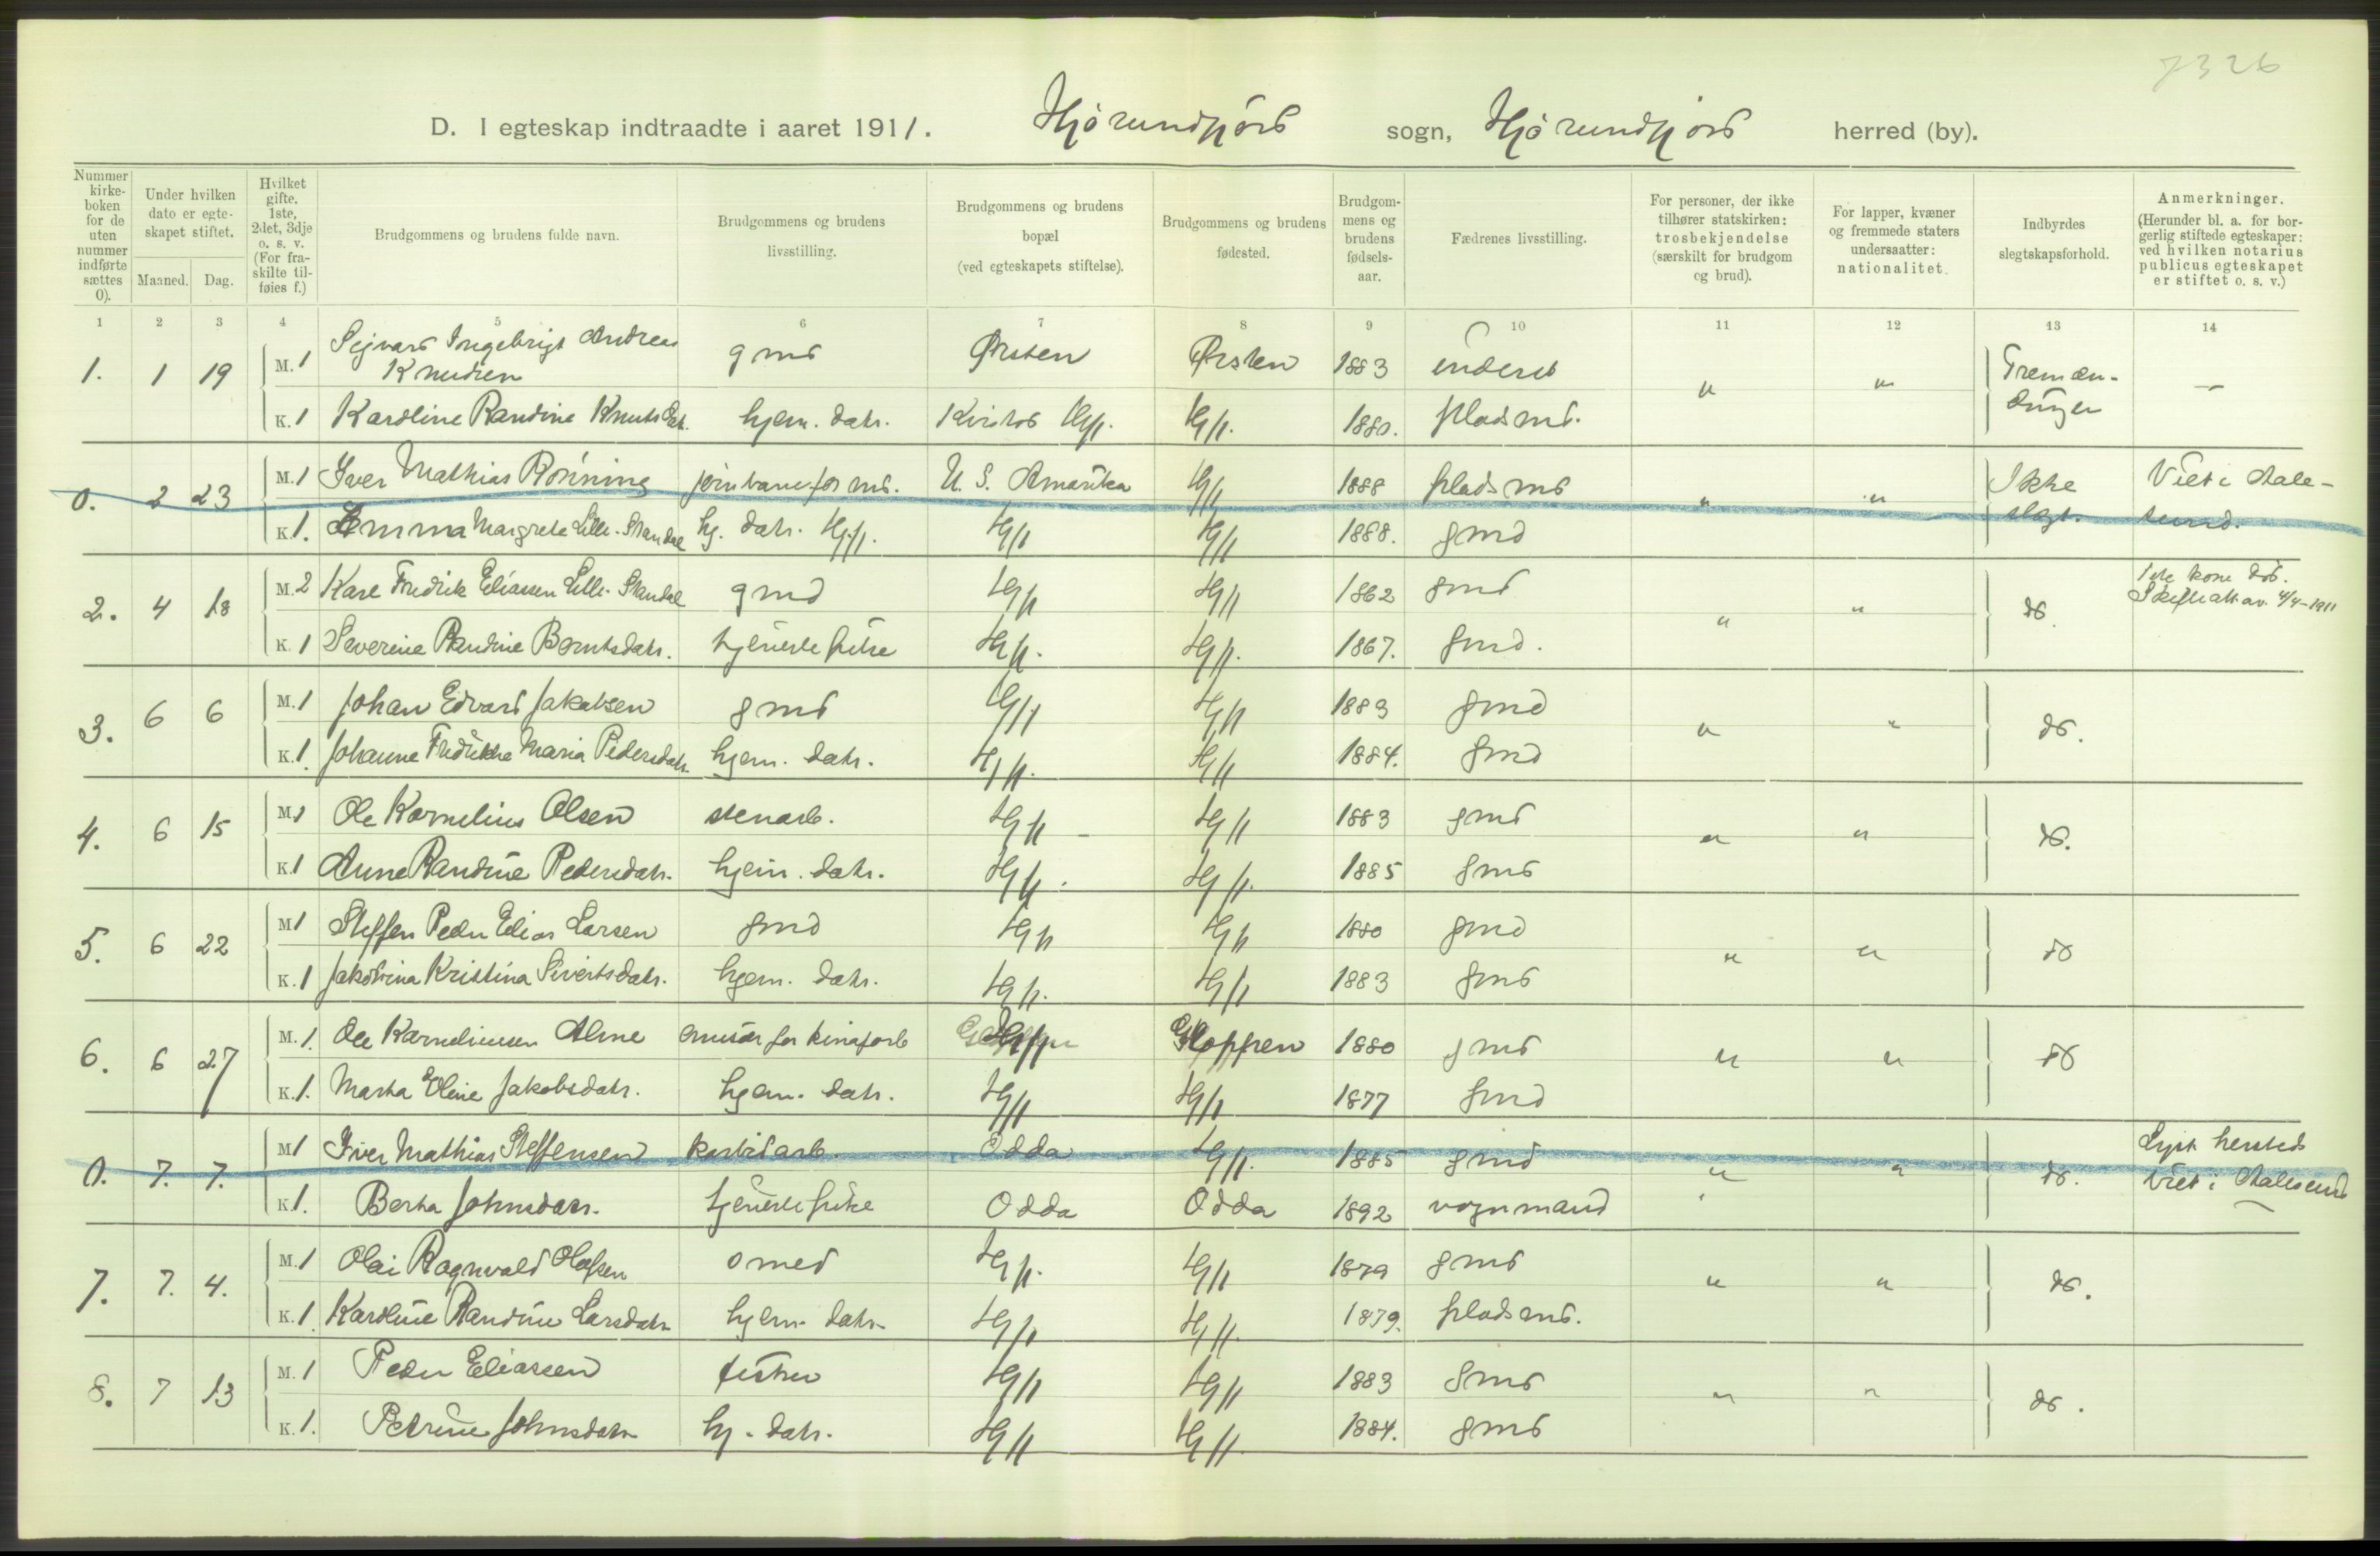 7326
D. I egteskap indtraadte i aaret 1911. Hjørundfjord sogn, Hjørundfjord herred (by).
Nummer kirkeboken for de uten nummer indførte sættes 0). Under hvilken dato er egteskapet stiftet. Maaned. Dag. Hvilket gifte. 1ste, 2det, 3dje o. s. v. (For fraskilte tilføies f.) Brudgommens og brudens fulde navn. Brudgommens og brudens livsstilling. Brudgommens og brudens bopæl (ved egteskapets stiftelse). Brudgommens og brudens fødested. Brudgommens og brudens fødselsaar. Fædrenes livsstilling. For personer, der ikke tilhører statskirken: trosbekjendelse (særskilt for brudgom og brud). For lapper, kvæner og fremmede staters undersaatter: nationalitet. Indbyrdes slegtskapsforhold. Anmerkninger. (Herunder bl. a. for borgerlig stiftede egteskaper: ved hvilken notarius publicus egteskapet er stiftet o. s. v.)
1 2 3 4 5 6 7 8 9 10 11 12 13 14
1. 1 19 M. 1 Sejvard Ingebrigt Andreas Knudsen gmd Ørsten Ørsten 1883 " " Tremæn-
K. 1 Karoline Randine Knutsdat. hjem. datr. Hjf. Hjf. 1880. pladsmd. dinger —
0. 2 23 M. 1 Iver Mathias Rönning U. S. Amarika Hjf 1888 pladsmd " " Ikke Viet i Aale-
K. 1. Emma Margrete Lille-Standal hj. datr. Hjf. Hjf Hjf 1888. gmd slagt. sund.
2. 4 18 M. 2 Karl Fredrik Eliassen Lille-Standal gmd Hjf Hjf 1862 gmd " " do. 1ste kone död.
Skifteatt. av. 4/4-1911
K. 1 Severine Randine Berntsdatr. tjenestepike Hjf. Hjf. 1867. gmd.
3. 6 6 M. 1 Johan Edvard Jakobsen gmd Hjf Hjf 1883 gmd " " do.
K. 1. Johanne Fredrikke Maria Pedersdatr. hjem. datr. Hjf. Hjf 1884. gmd
4. 6 15 M. 1 Ole Kornelius Olsen stenarb. Hjf - Hjf 1883 gmd " " do.
K. 1 Anne Randine Pedersdatr. hjem. datr. Hjf. Hjf. 1885 gmd
5. 6 22 M. 1 Steffen Peder Elias Larsen gmd Hjf Hjf 1880 gmd " " do
K. 1 Jakobina Kristina Sivertsdatr. hjem. datr. Hjf. Hjf 1883 gmd
6. 6 27 M. 1. Ole Korneliussen Alme Hjf Gloppen 1880 gmd " " do
K. 1. Marta Oline Jakobsdatr. hjem. datr. Hjf Hjf 1877 gmd
0. 7. 7. M. 1 Iver Mathias Steffensen karbidarb. Odda Hjf. 1885 gmd " " do. Lyst hersteds
K. 1. Berta Johnsdatr. tjenestepike Odda Odda 1892 vognmand Viet i Aalesund
7. 7. 4. M. 1 Olai Ragnvald Olafsen Hjf. Hjf 1879 gmd " " do.
K. 1. Karoline Randine Larsdatr hjem. datr. Hjf Hjf. 1879. pladsmd.
8. 7 13 M. 1 Peder Eliassen fisker Hjf Hjf 1883 gmd " " do.
K. 1. Petrine Johnsdatr hj. datr. Hjf Hjf. 1884. gmd